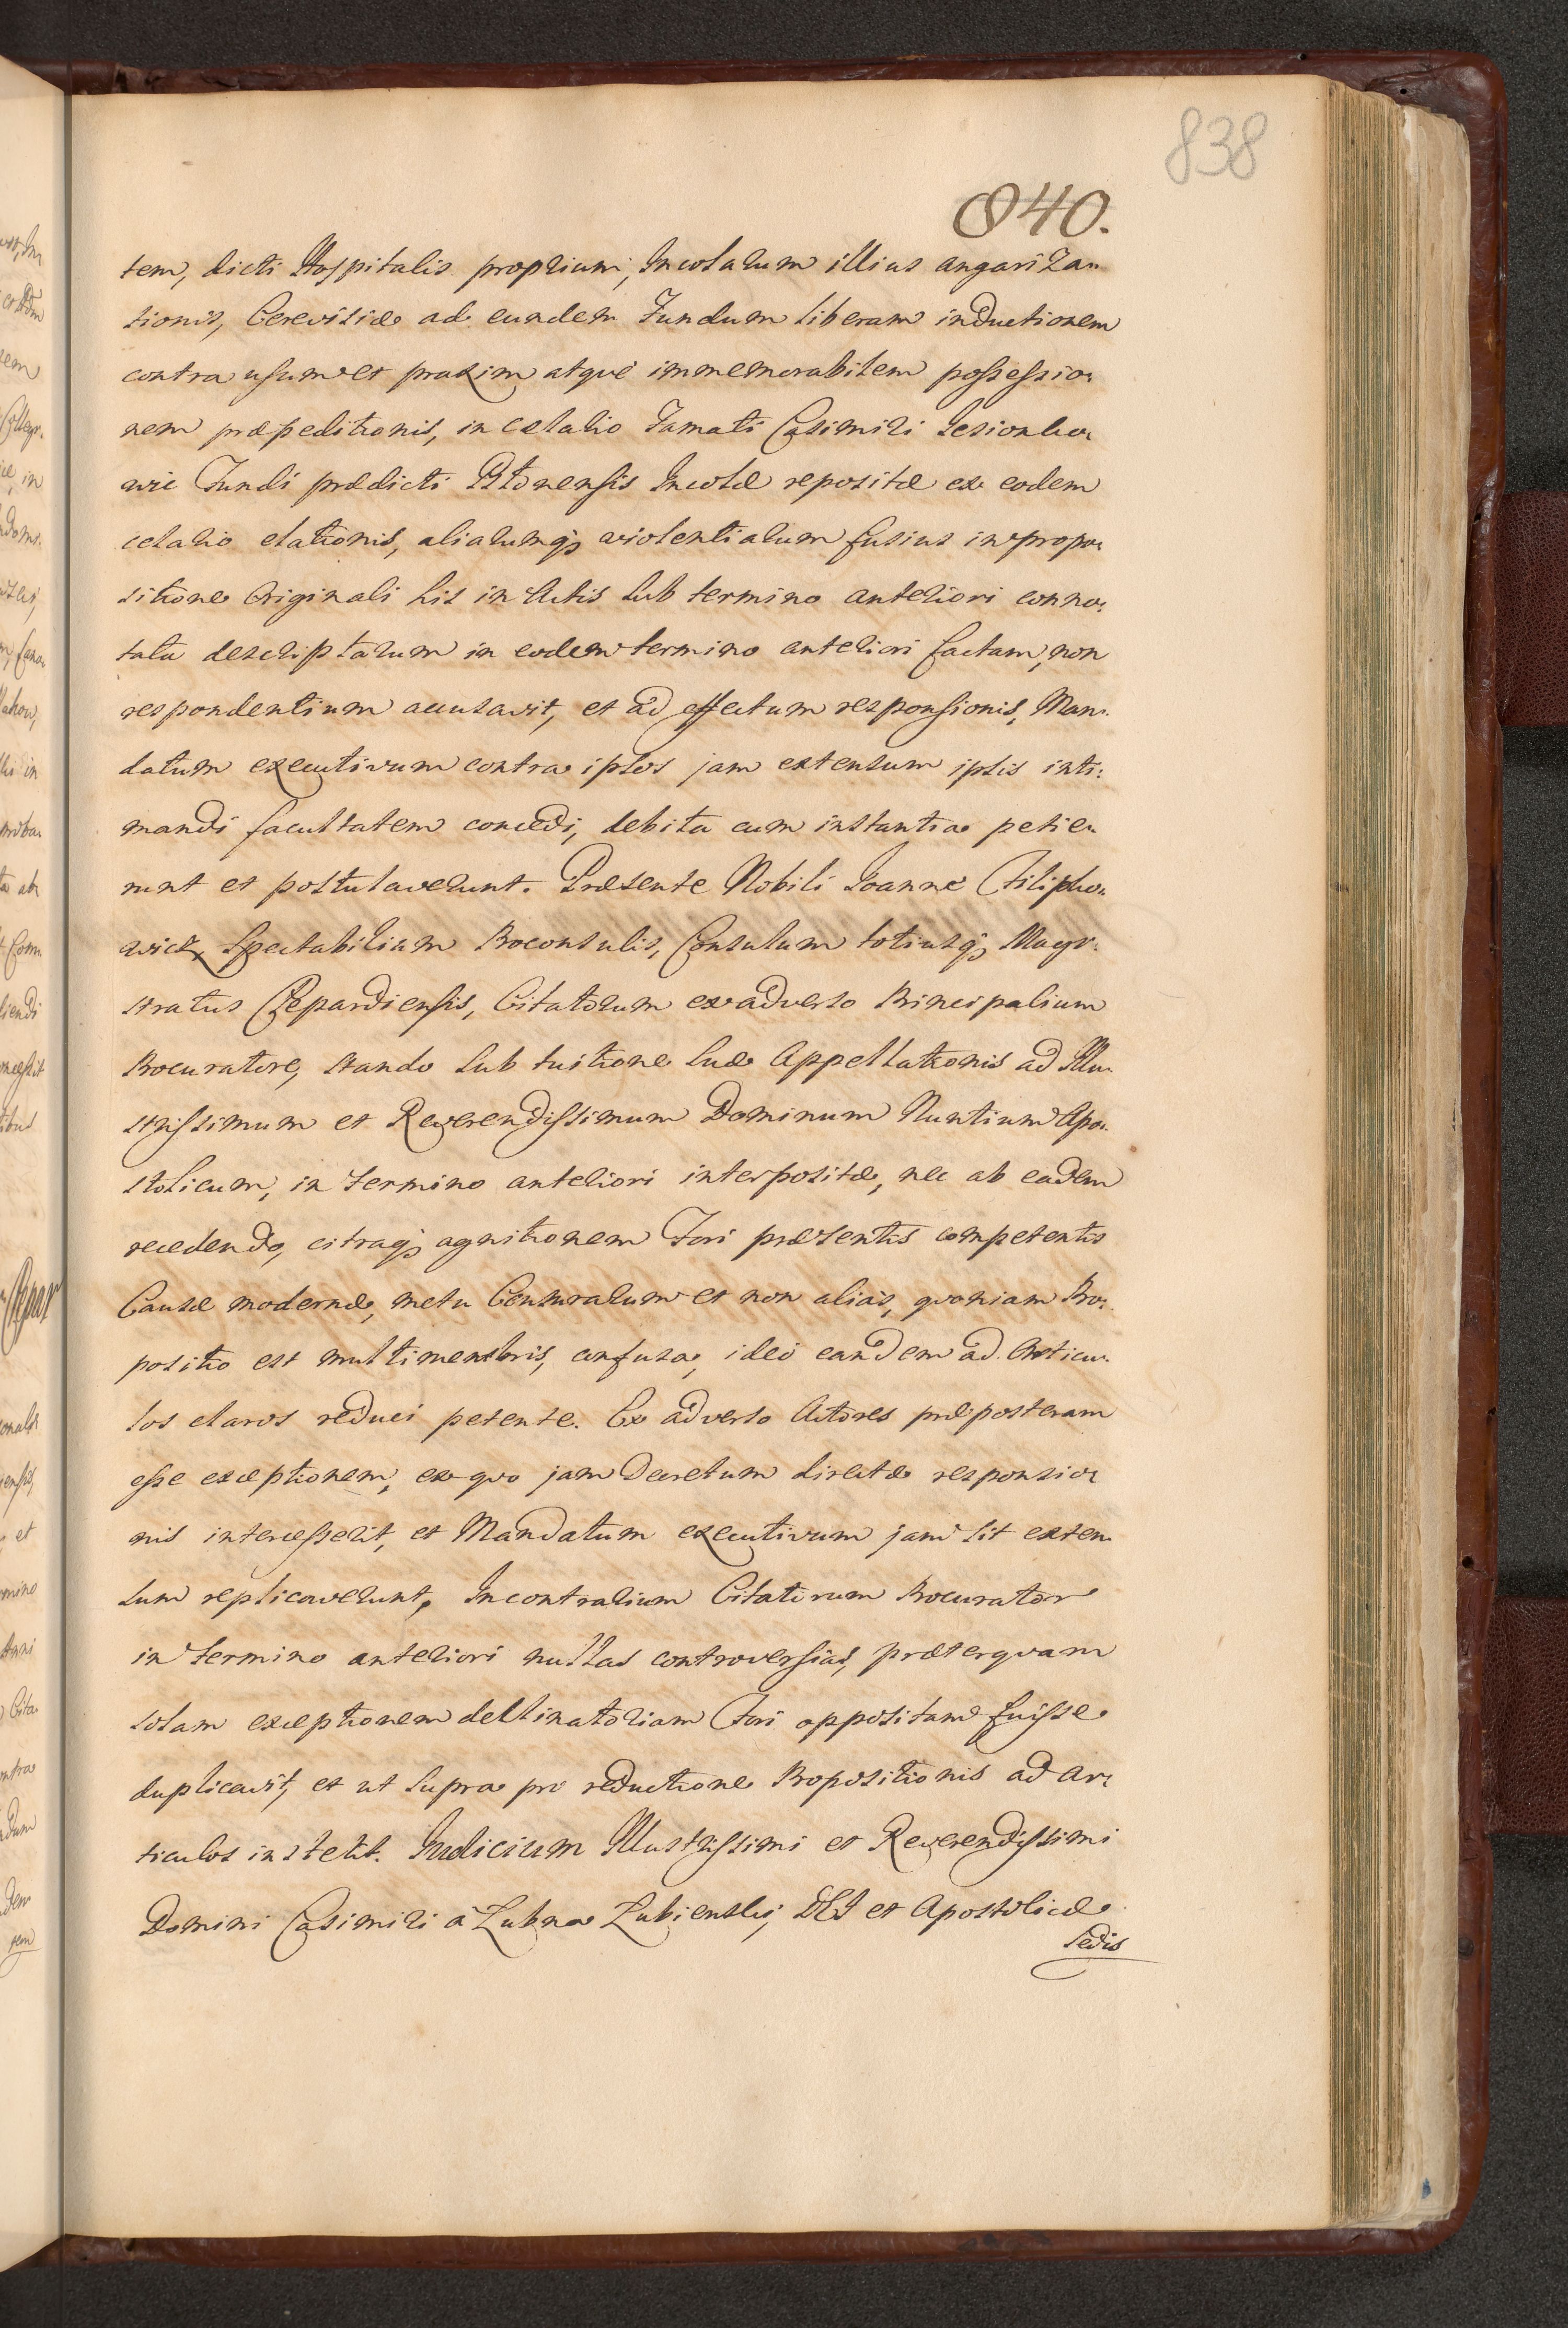 838
840.
tem, dicti Hospitalis proprium, Incolarum illius angariza-
tionis, Cerevisiæ ad eundem Fundum liberam inductionem
contra usum et praxim atque immemorabilem possessio-
nem præpeditionis, in celario Famati Casimiri Jesionko-
wic Fundi prædicti Incolæ repositæ ex eodem
celario elationis, aliarumq; violentiarum fusius in propo-
sitione Originali his in Actis sub termino anteriori conno-
tata descriptarum in eodem termino anteriori factam, non
respondentium accusavit, et ad effectum responsionis, Man-
datum executivum contra ipsos jam extensum ipsis inti-
mandi facultatem concedi, debita cum instantia petie-
runt et postulaverunt. Præsente Nobili Joanne Filipko-
wicz, Spectabilium Proconsulis, Consulum totiusq; Magi-
stratus Clepardiensis, Citatorum ex adverso Principalium
Procuratore, stando sub tuitione suæ Appellationis ad Illu-
strissimum et Reverendissimum Dominum Nuntium Apo-
stolicum, in termino anteriori interpositæ, nec ab eadem
recedendo, citraq; agnitionem Fori præsentis competentis
Causæ modernæ, metu Censurarum et non alias, quoniam Pro-
positio est multimembris, confusa, ideo eandem ad Articu-
los claros reduci petente. Ex adverso Actores præposteram
esse exceptionem, ex quo jam Decretum directæ responsio-
nis intercesserit, et Mandatum executivum jam sit exten-
sum replicaverunt, Incontrarium Citatorum Procurator
in termino anteriori nullas controversias, præterquam
solam exceptionem declinatoriam Fori oppositam fuisse
duplicavit, et ut supra pro reductione Propositionis ad Ar-
ticulos institit. Judicium Illustrissimi et Reverendissimi
Domini Casimiri à Łubna Łubienski, DEI et Apostolicæ
Sedis